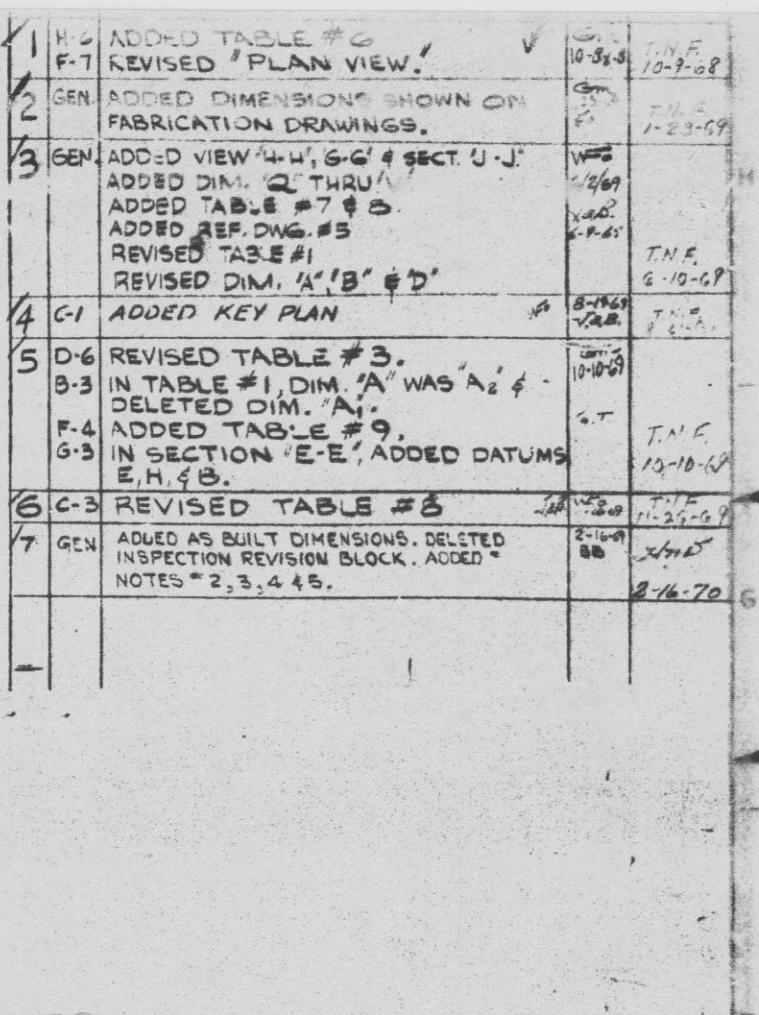 1 H-6 ADDED TABLE #6
F-7 REVISED "PLAN VIEW." T.N.F. 10-9-68
2 GEN. ADDED DIMENSIONS SHOWN ON
FABRICATION DRAWINGS. T.N.F. 1-23-69
3 GEN. ADDED VIEW "H-H", "G-G" & SECT. "J-J."
ADDED DIM. "Q" THRU
ADDED TABLE #7 & 8.
ADDED REF. DWG. #5
REVISED TABLE #1 T.N.F.
REVISED DIM. "A", "B" & "D" 6-10-69
4 C-1 ADDED KEY PLAN
5 D-6 REVISED TABLE #3. 10-10-69
B-3 IN TABLE #1, DIM. "A" WAS "A2" &
DELETED DIM. "A1".
F-4 ADDED TABLE #9. T.N.F.
G-3 IN SECTION "E-E", ADDED DATUMS 10-10-69
E, H, & B.
6 C-3 REVISED TABLE #8 T.N.F. 11-25-69
7 GEN ADDED AS BUILT DIMENSIONS. DELETED
INSPECTION REVISION BLOCK. ADDED BB
NOTES # 2, 3, 4 & 5. 2-16-70
H
G